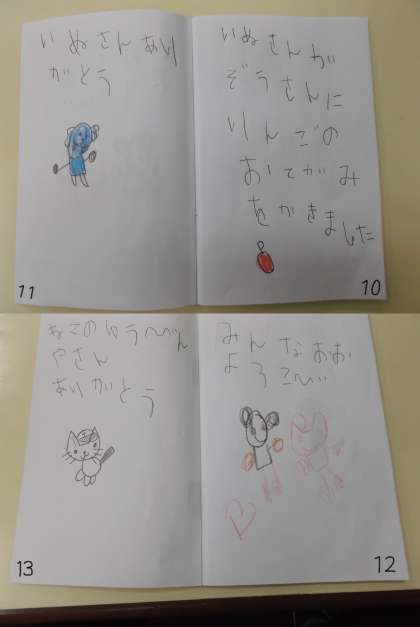 いぬさんが
ぞうさんに
りんごの
おてがみ
をかきました
10
いぬさんあり
がとう
11
みんなおお
よろこび
12
ねこのゆうびん
やさん
ありがとう
13